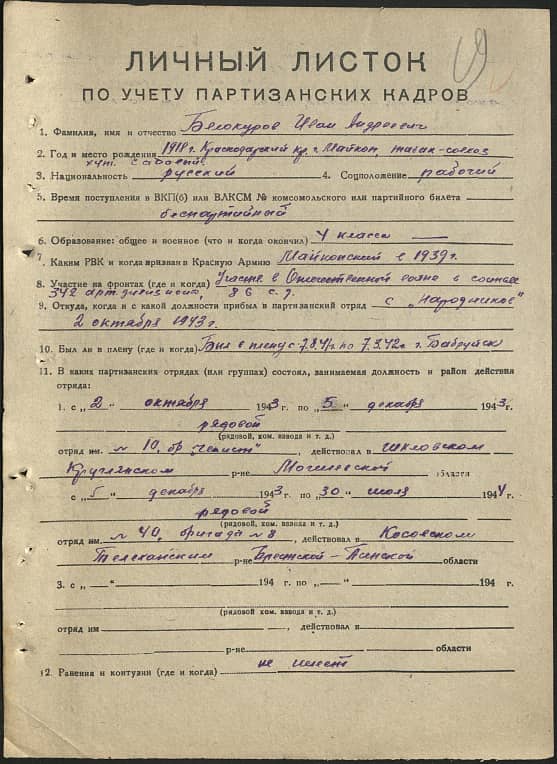 ЛИЧНЫЙ ЛИСТОК
ПО УЧЕТУ ПАРТИЗАНСКИХ КАДРОВ
1. Фамилия, имя и отчество Белокуров Иван Андреевич
2. Год и место рождения 1918 г. Краснодарский кр. г. Майкоп, табак-совхоз
3. Национальность русский 4. Соцположение рабочий
5. Время поступления в ВКП(б) или ВЛКСМ № комсомольского или партийного билета
беспартийный
6. Образование: общее и военное (что и когда окончил) 4 класса
7. Каким РВК и когда призван в Красную Армию Майкопский в 1939 г.
8. Участие на фронтах (где и когда) Участв. в Отечественной войне в составе
342 арт. дивизиона, 86 с. д.
9. Откуда, когда и с какой должности прибыл в партизанский отряд с „Народников"
2 октября 1943 г.
10. Был ли в плену (где и когда) Был в плену с 7.8.41 г. по 7.3.42 г. Бабруйск
11. В каких партизанских отрядах (или группах) состоял, занимаемая должность и район действия
отряда:
1. с „2" октября 1943 г. по „5" декабря 1943 г.
рядовой
(рядовой, ком. взвода и т. д.)
отряд им. № 10, бр. „Чекист", действовал в Шкловском
Круглянском р-не Могилевской области
с „5" декабря 1943 г. по „30" июля 1944 г.
рядовой
(рядовой, ком. взвода и т. д.)
отряд им. № 40, бригада № 8, действовал в Косовском
Телеханским р-не Брестской-Пинской области
3. с „ " 194 г. по „ " 194 г.
(рядовой, ком. взвода и т. д.)
отряд им , действовал в
р-не области
12. Ранения и контузии (где и когда) не имеет